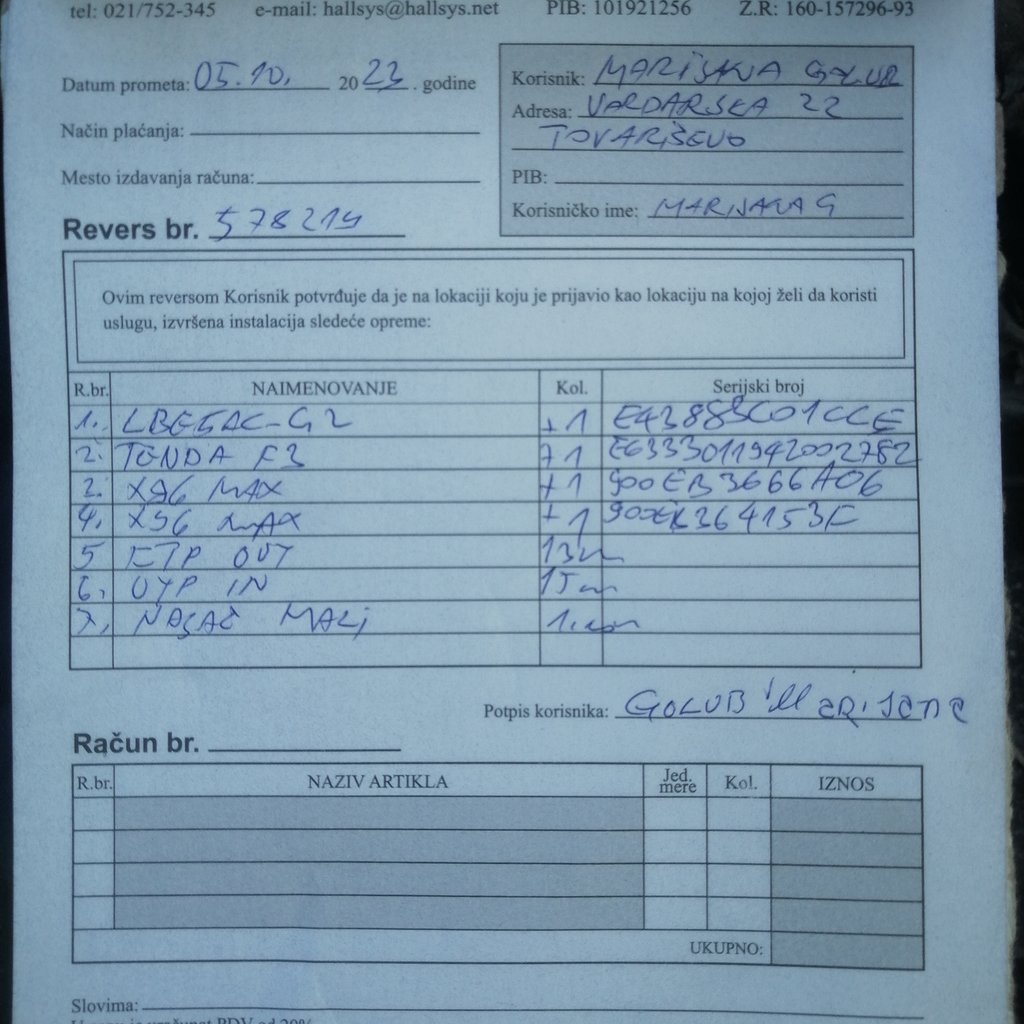 tel: 021/752-345 e-mail: hallsys@hallsys.net PIB: 101921256 Z.R: 160-157296-93
Datum prometa: 05.10. 2023. godine
Način plaćanja:
Mesto izdavanja računa:
Revers br. 578219
Korisnik: MARIJANA GOLUB
Adresa: VARDARSKA 22
TOVARIŠEVO
PIB:
Korisničko ime: MARIJANA G
Ovim reversom Korisnik potvrđuje da je na lokaciji koju je prijavio kao lokaciju na kojoj želi da koristi
uslugu, izvršena instalacija sledeće opreme:
R.br. NAIMENOVANJE Kol. Serijski broj
1. LBE5AC-G2 +1 E43883C01CCE
2. TENDA F3 +1 E6333011942002782
2. X96 MAX +1 900EB3666A06
4. X96 MAX +1
5 FTP OUT 13m
6. UTP IN 15m
7, NOSAČ MALI 1.kom
Potpis korisnika: GOLUB Marijana
Račun br.
R.br. NAZIV ARTIKLA Jed. mere Kol. IZNOS
UKUPNO:
Slovima: